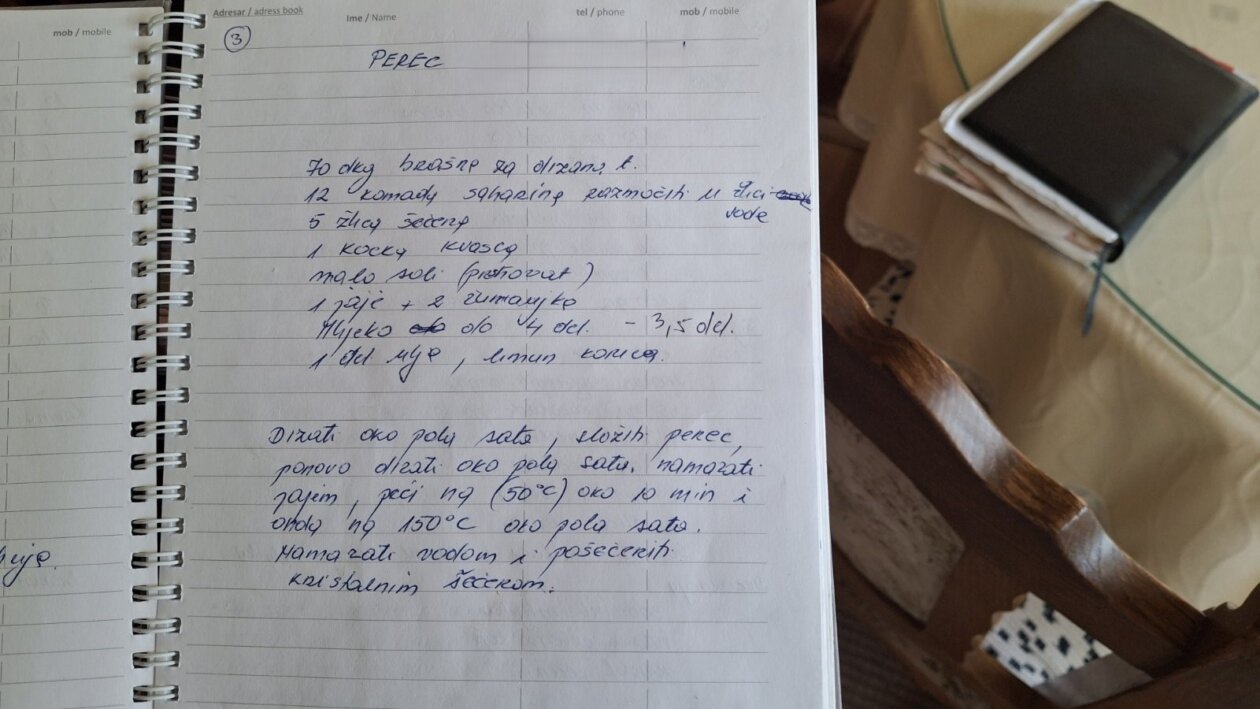 mob / mobile
Adresar / adress book
Ime / Name
tel / phone
mob / mobile
3
PEREC
70 dkg brašna za dizana t.
12 komada saharina razmočiti u žlici
vode
5 žlica šećera
1 kocka kvasca
malo soli (prstohvat)
1 jaje + 2 žumanjka
Mljeko do 4 dcl. - 3,5 dcl.
1 dcl ulja, limun korica.
Dizati oko pola sata, složiti perec,
ponovo dizati oko pola sata. namazati
jajem, peći na (50°C) oko 10 min i
onda na 150°C oko pola sata.
Namazati vodom i pošećeriti
kristalnim šećerom.